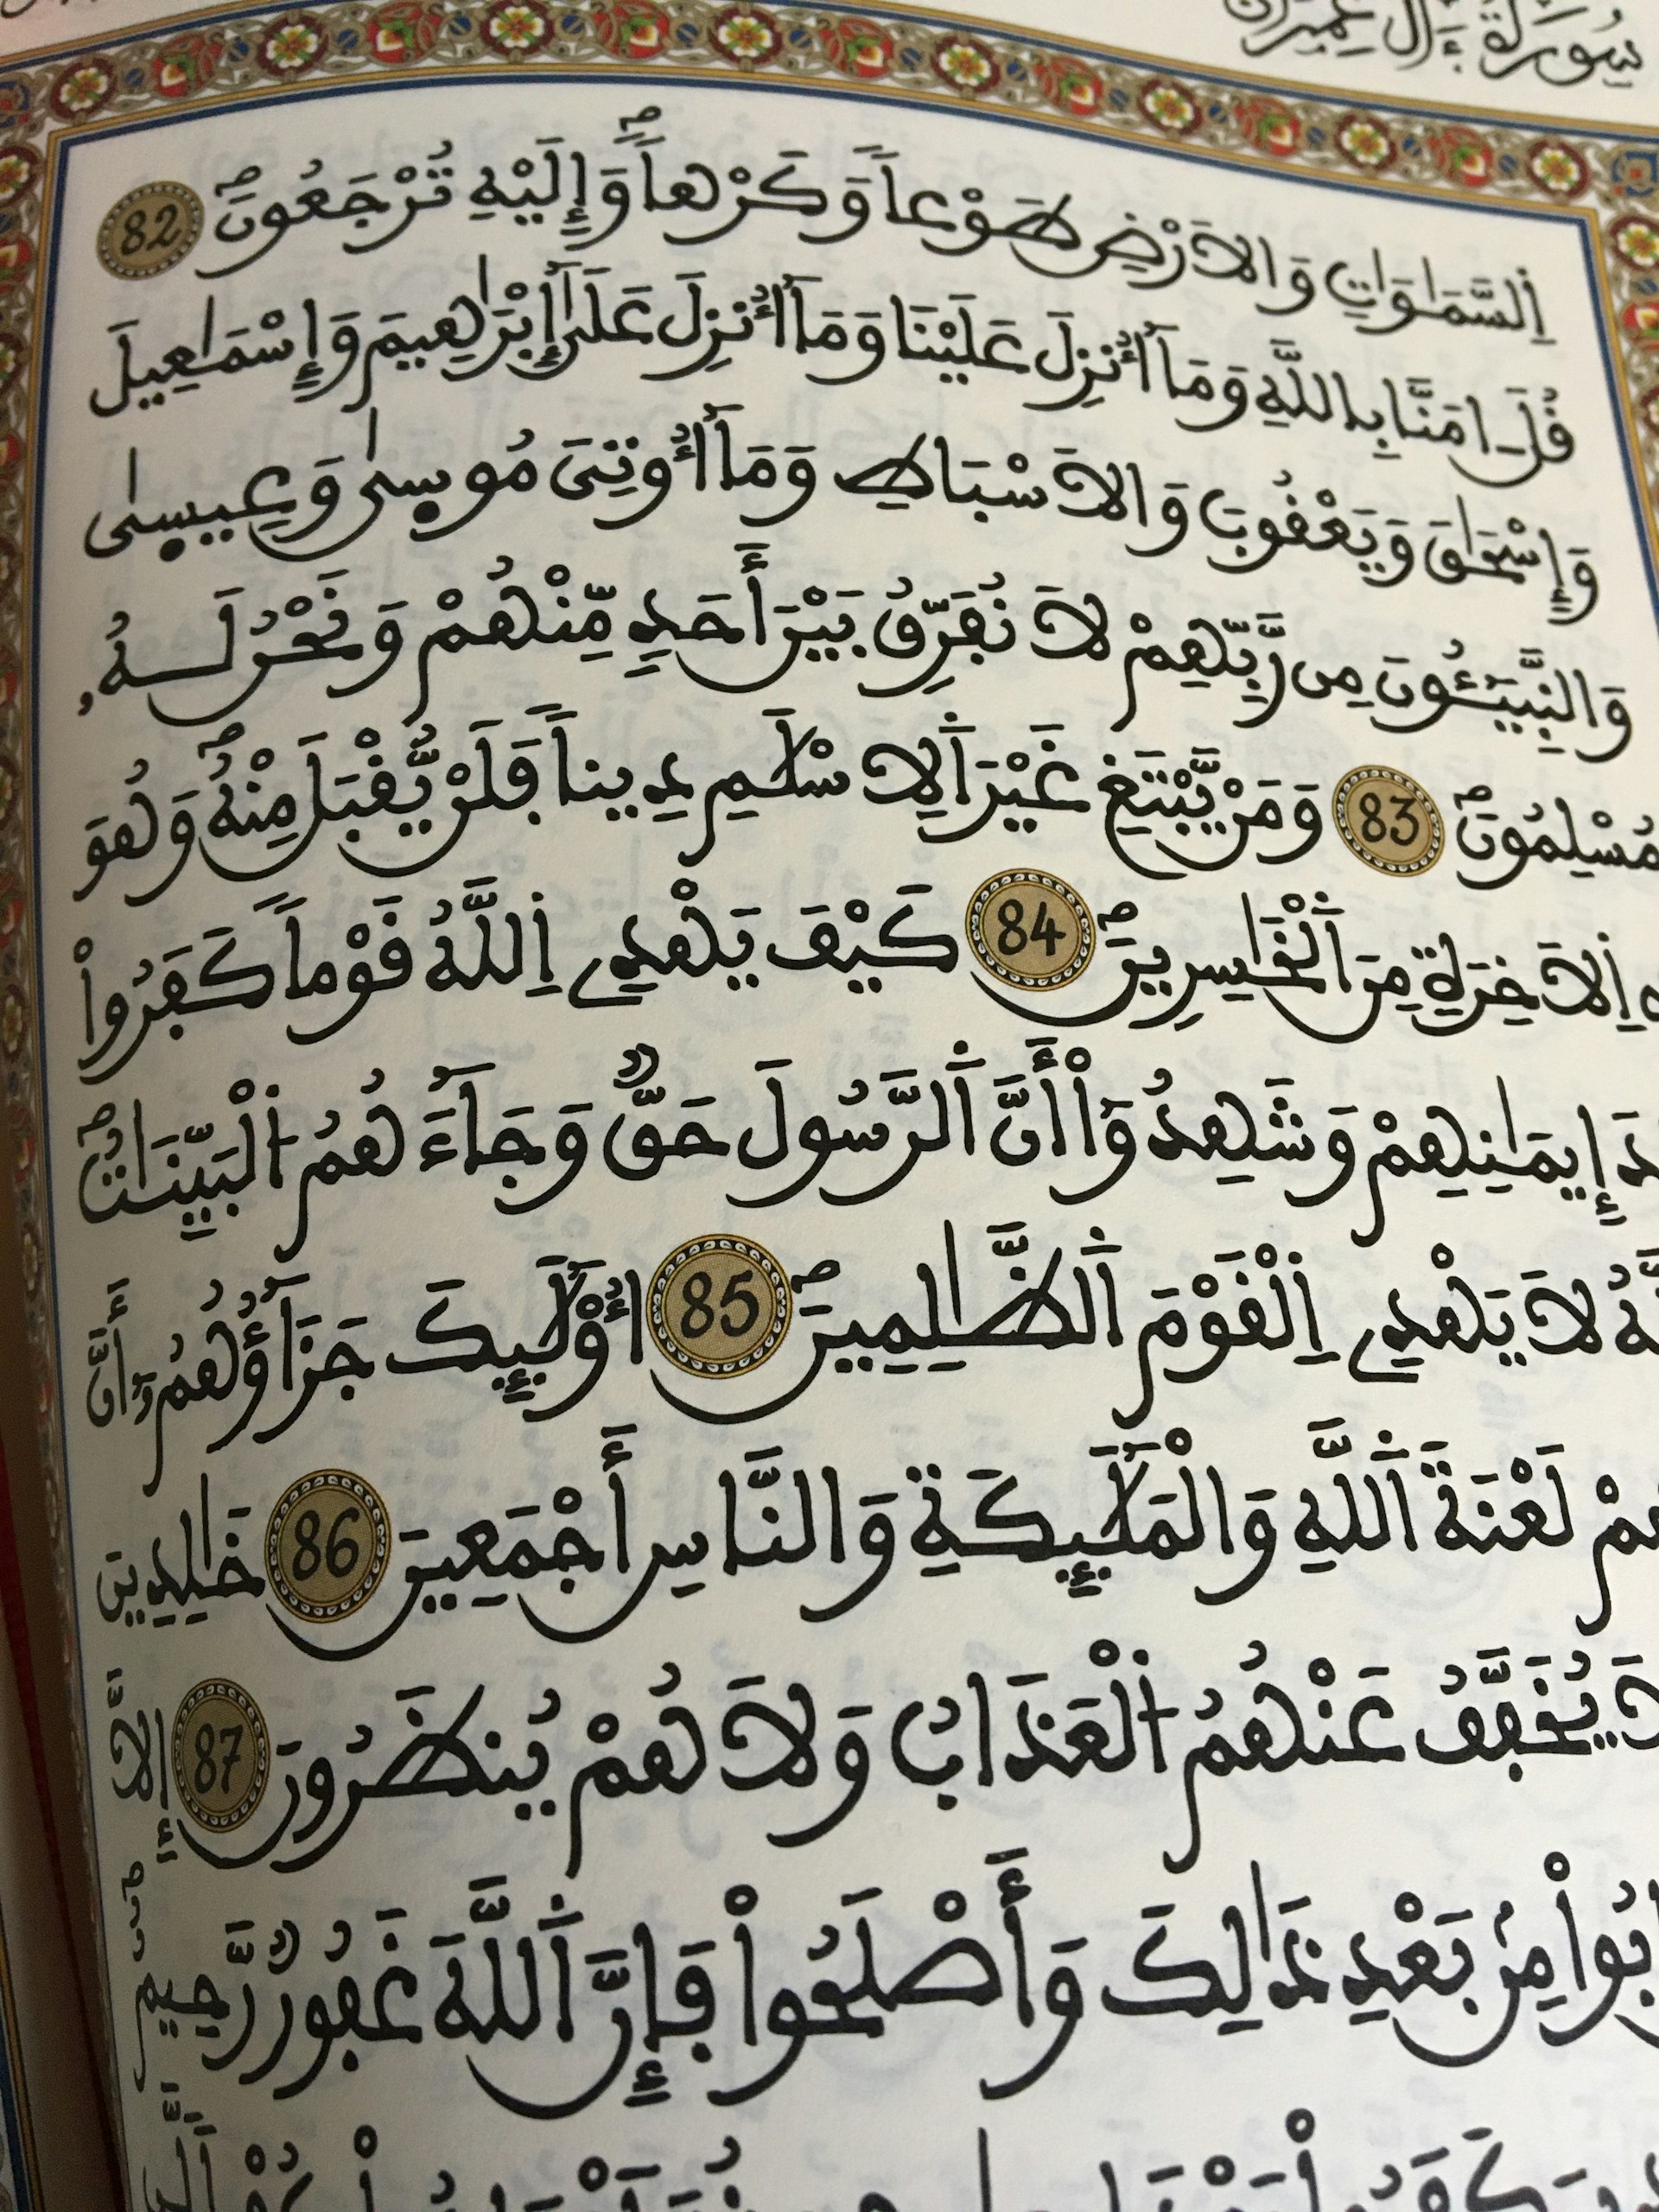 سُورَةُ ءَالِ عِمْرَانَ
اِ۬لسَّمَٰوَٰتِ وَالَارْضِ طَوْعاٗ وَكَرْهاٗ وَإِلَيْهِ تُرْجَعُونَۖ 82
قُلَ اٰمَنَّا بِاللَّهِ وَمَآ أُنزِلَ عَلَيْنَا وَمَآ أُنزِلَ عَلَىٰٓ إِبْرَٰهِيمَ وَإِسْمَٰعِيلَ
وَإِسْحَٰقَ وَيَعْقُوبَ وَالَاسْبَاطِ وَمَآ أُوتِيَ مُوسِىٰ وَعِيسِىٰ
وَالنَّبِيٓـُٔونَ مِن رَّبِّهِمْ لَا نُفَرِّقُ بَيْنَ أَحَدٖ مِّنْهُمْ وَنَحْنُ لَهُۥ
مُسْلِمُونَۖ 83 وَمَنْ يَّبْتَغِ غَيْرَ اَ۬لِاسْلَٰمِ دِيناٗ فَلَنْ يُّقْبَلَ مِنْهُۖ وَهُوَ
اِ۬لَاخِرَةِ مِنَ اَ۬لْخَٰسِرِينَۖ 84 كَيْفَ يَهْدِے اِ۬للَّهُ قَوْماٗ كَفَرُواْ
إِيمَٰنِهِمْ وَشَهِدُوٓاْ أَنَّ اَ۬لرَّسُولَ حَقّٞ وَجَآءَهُمُ اُ۬لْبَيِّنَٰتُۖ
لَا يَهْدِے اِ۬لْقَوْمَ اَ۬لظَّٰلِمِينَۖ 85 أُوْلَٰٓئِكَ جَزَآؤُهُمُۥٓ أَنَّ
لَعْنَةَ اَ۬للَّهِ وَالْمَلَٰٓئِكَةِ وَالنَّاسِ أَجْمَعِينَ 86 خَٰلِدِينَ
لَا يُخَفَّفُ عَنْهُمُ اُ۬لْعَذَابُ وَلَا هُمْ يُنظَرُونَ 87 إِلَّا
مِنۢ بَعْدِ ذَٰلِكَ وَأَصْلَحُواْ فَإِنَّ اَ۬للَّهَ غَفُورٞ رَّحِيمٌ